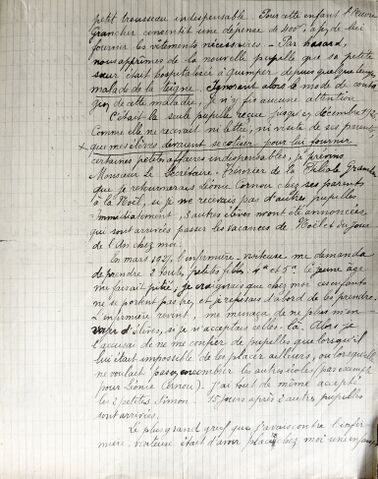 petit trousseau indispensable. Pour cette enfant l'Œuvre
Grancher consentit une dépense de 200f afin de lui
fournir les vêtements nécessaires. - Par hasard,
nous apprîmes de la nouvelle pupille que sa petite
sœur était hospitalisée à Quimper depuis quelque temps,
malade de la teigne. Ignorant alors le mode de conta
gion de cette maladie, je n'y fis aucune attention
C'était la seule pupille reçue jusqu'en décembre 1926
Comme elle ne recevait ni lettre, ni visite de ses parents,
que mes élèves devaient se cotiser pour lui fournir
certaines petites affaires indispensables, je prévins
Monsieur le Secrétaire-Trésorier de la Filiale Grancher
que je retournerais Léonie Cornou chez ses parents
à la Noël, si je ne recevais pas d'autres pupilles
Immédiatement, 3 autres élèves m'ont été annoncées,
qui sont arrivées passer les vacances de Noël et du jour
de l'An chez moi.
En mars 1927, l'infirmière-visiteuse me demanda
de prendre 2 toutes petites filles 4a et 5a. Le jeune âge
me faisait pitié; je craignais que chez moi ces enfants
ne se portent pas bien, et je refusais d'abord de les prendre.
L'infirmière revint, me menaça de ne plus m'en-
voyer d'élèves, si je n'acceptais celles-là. Alors je
l'accusai de ne me confier de pupilles que lorsqu'il
lui était impossible de les placer ailleurs, ou lorsqu'elle
ne voulait pas encombrer les autres écoles (par exemple
pour Léonie Cornou). J'ai tout de même accepté
les 2 petites Simon. 15 jours après 2 autres pupilles
sont arrivées.
Le plus grand grief que j'avais contre l'infir
mière-visiteuse était d'avoir placé chez moi une enfant